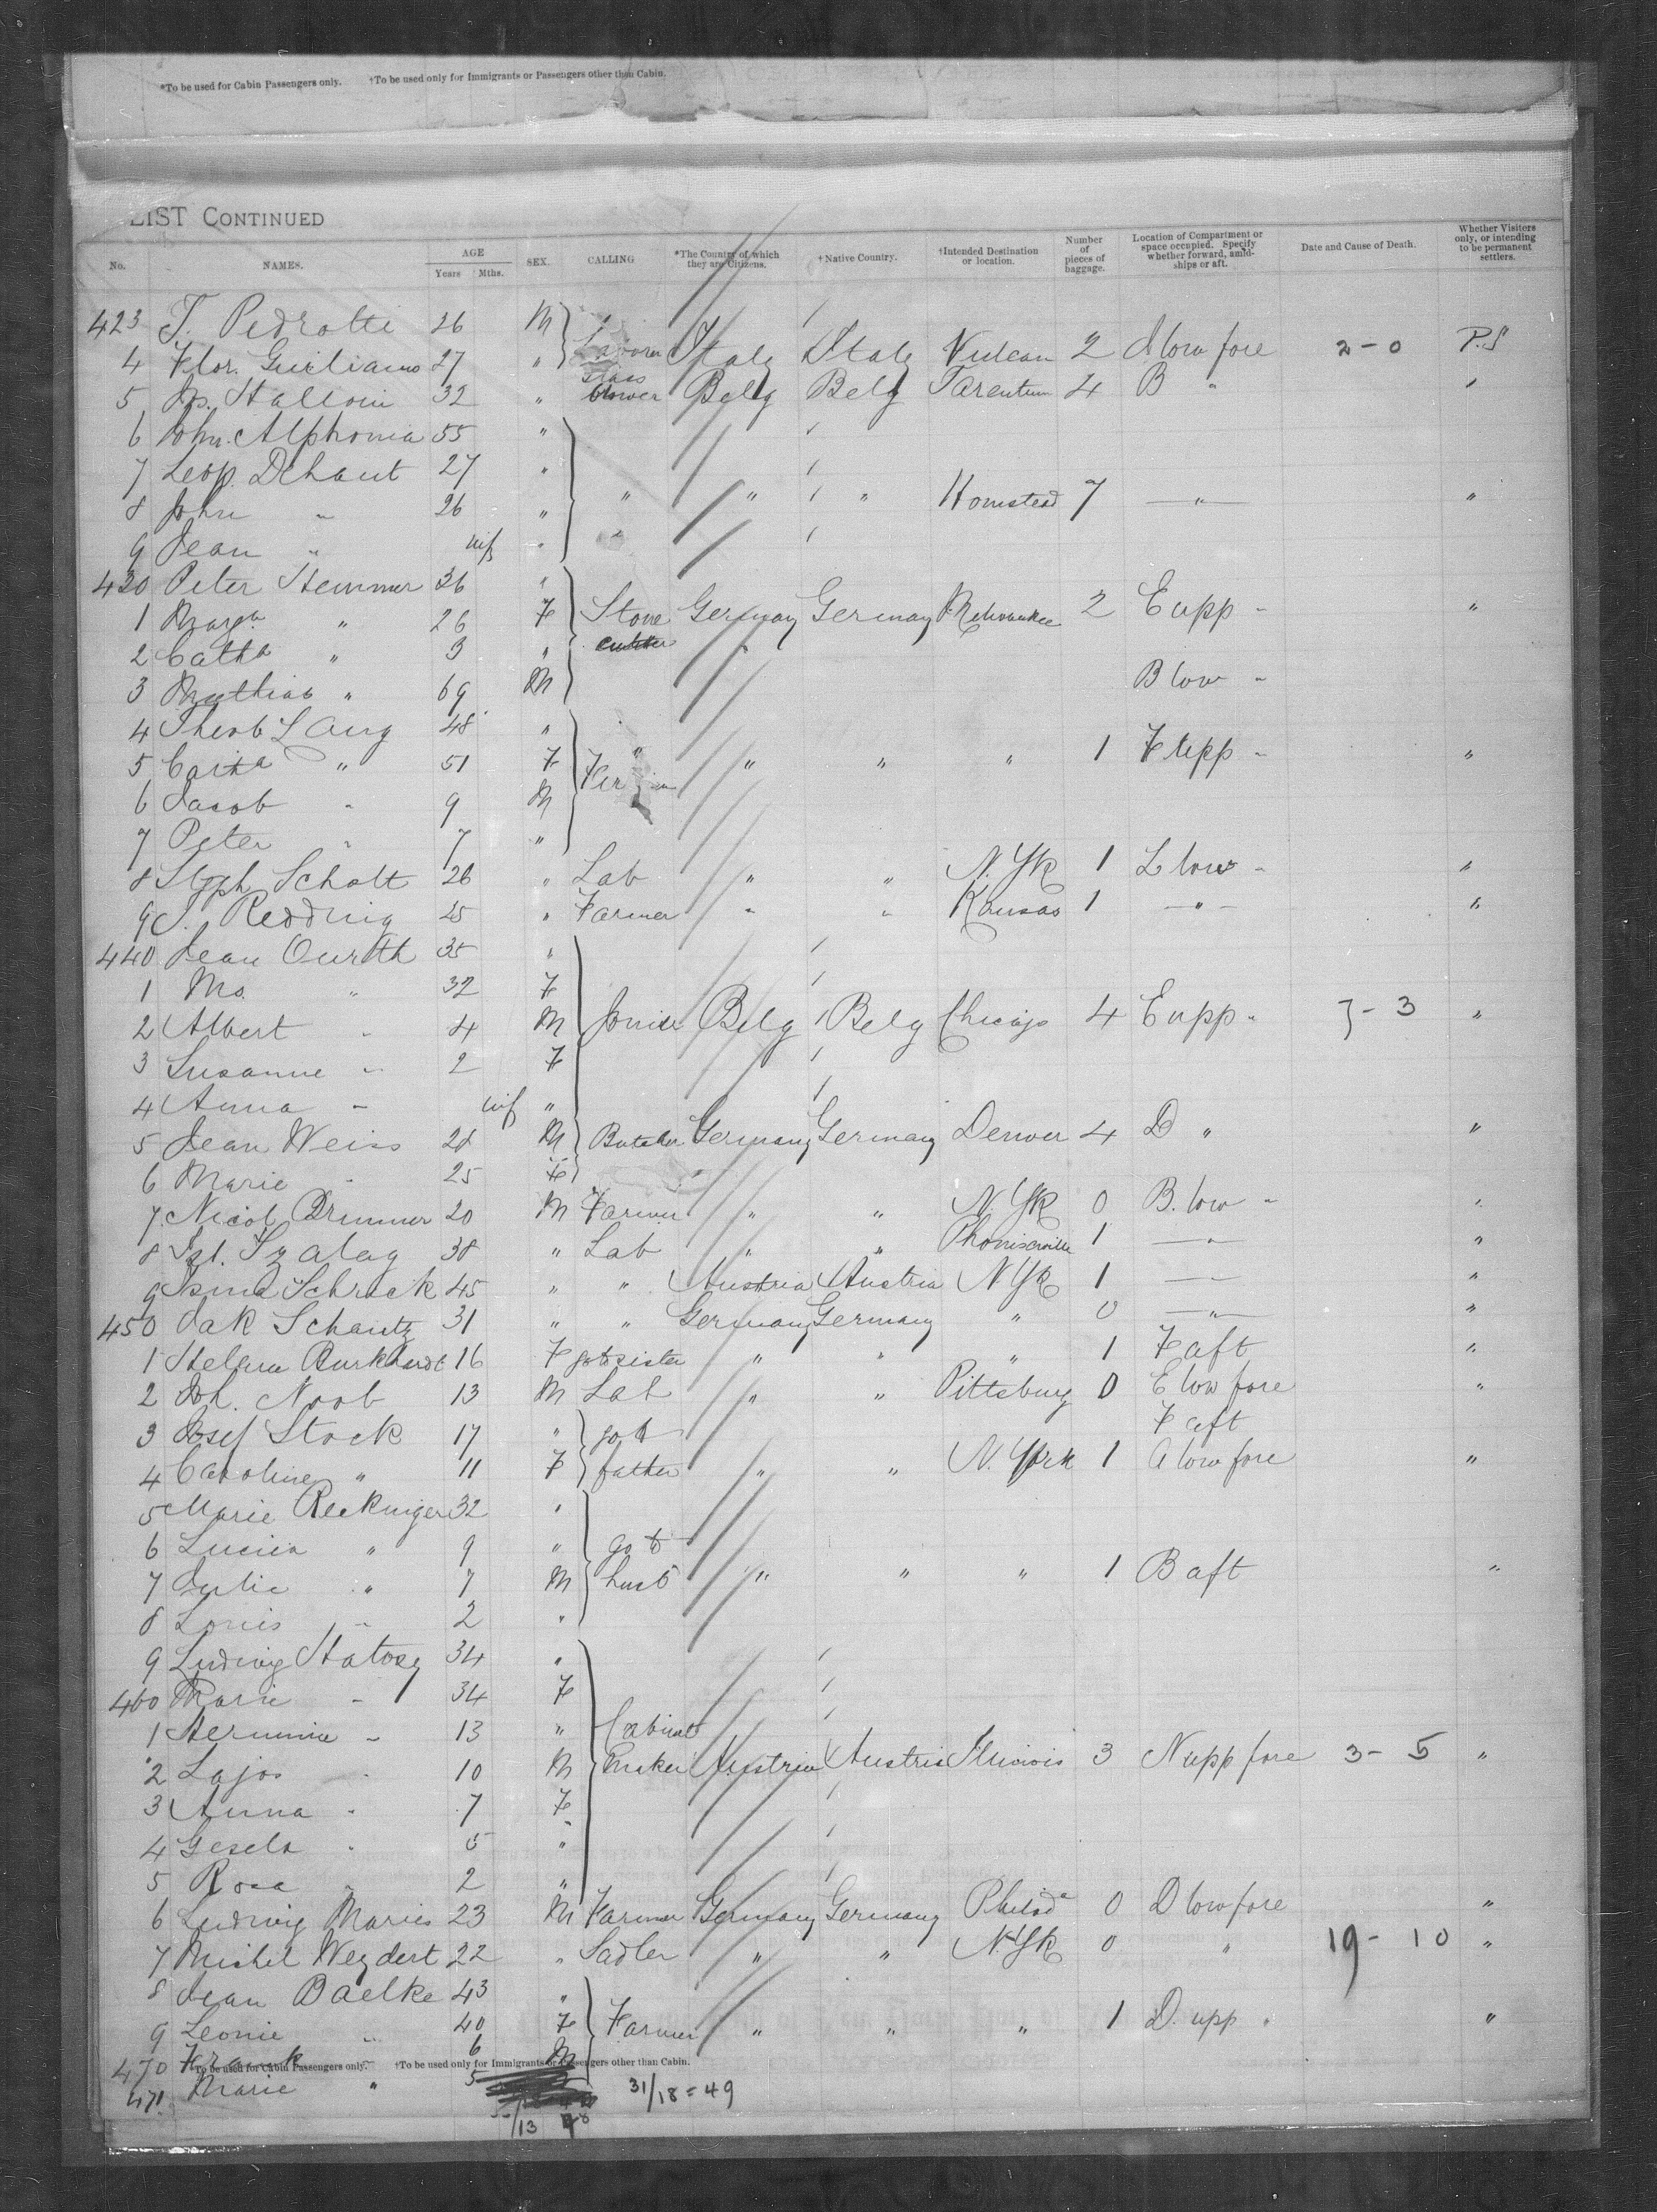 *To be used for Cabin Passengers only. †To be used only for Immigrants or Passengers other than Cabin.
LIST CONTINUED
No. NAMES. AGE Years Mths. SEX. CALLING *The Country of which they are Citizens. †Native Country. †Intended Destination or location. Number of pieces of baggage. Location of Compartment or space occupied. Specify whether forward, amidships or aft. Date and Cause of Death. Whether Visitors only, or intending to be permanent settlers.
423 T. Pedrotti 26 M
4 Flor. Guiliamo 27 " Labour Italy Italy Vulcan 2 A low fore 2-0 P.S
5 32 " glass blower Belg Belg Tarentum 4 B " "
6 Alphonia 55 "
7 Leop. Dehaut 27 "
8 John " 26 " " " " Homstead 7 " "
9 Jean " inf " "
430 Peter Hemmer 36 "
1 Marga " 26 F Stone cutter Germany Germany Milwaukee 2 E upp " "
2 Catha " 3 "
3 Mathias " 69 M B low "
4 Theob Lang 48 "
5 Catha " 51 F " " " " 1 F upp " "
6 Jacob " 9 M
7 Peter " 7 "
8 Steph Schott 26 " Lab " " N. Yk 1 L low " "
9 J. Redding 25 " Farmer " " Kansas 1 " "
440 Jean Ourth 35 "
1 Ms. " 32 F
2 Albert " 4 M Belg Belg Chicago 4 E upp " 7-3 "
3 Susanne " 2 F
4 Anna " inf "
5 Jean Weiss 28 M Butcher Germany Germany Denver 4 D " "
6 Marie " 25 F "
7 Nicol Brimmer 20 M Farmer " " N. Yk 0 B. low " "
8 38 " Lab " " 1 " "
9 Schrack 45 " " Austria Austria N Yk 1 " "
450 Jak Schantz 31 " " Germany Germany " 0 " "
1 Helena Burkhardt 16 F go to sister " " " 1 F aft "
2 Joh. Noob 13 M Lab " " Pittsburg 0 E low fore "
3 Josef Stock 17 " go to F aft
4 Caroline " 11 F father " " N. York 1 A low fore "
5 Marie Reckinger 32 "
6 Lucien " 9 " go to
7 Julie " 7 M husb " " " 1 B aft "
8 Louis " 2 "
9 Ludwig Hatosy 34 "
460 Marie " 34 F
1 Hermine " 13 " Cabinet
2 Lajos " 10 M maker Austria Austria Illinois 3 N upp fore 3-5 "
3 Anna " 7 F
4 Gesela " 5 "
5 Rosa " 2 "
6 Ludwig Maries 23 M Farmer Germany Germany Philada 0 D low fore "
7 Michel Weydert 22 " Sadler " " N.Yk 0 " 19-10 "
8 Jean Baelke 43 "
9 Leonie " 40 F Farmer " " " 1 D. upp " "
470 Frank " 6 M
*To be used for Cabin Passengers only. †To be used only for Immigrants or Passengers other than Cabin.
471 Marie " 5 31/18 = 49